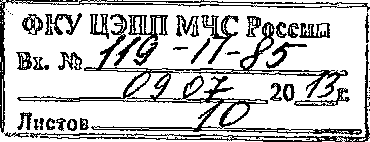 ФКУ ЦЭПП МЧС России
Вх. № 119-11-85
09 07 2013г.
Листов 10